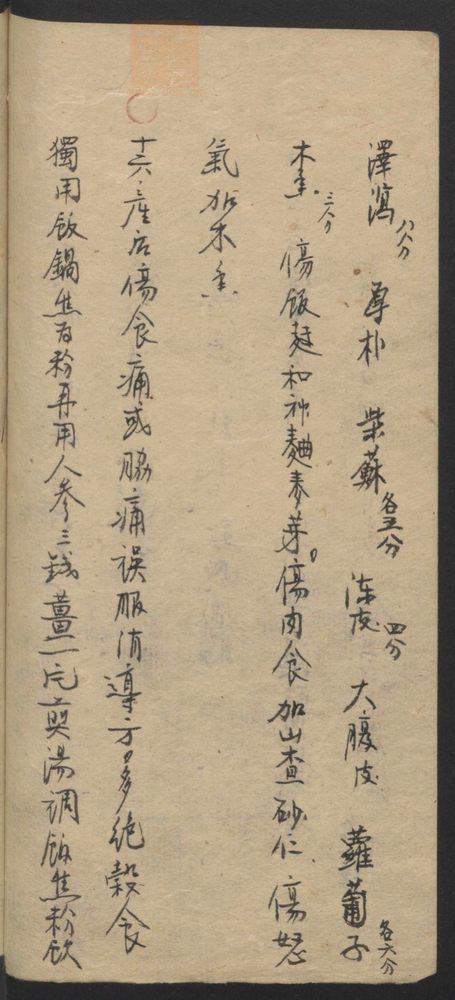 澤瀉八分 厚朴 柴蘇各五分 陳皮四分 大腹皮 蘿蔔子各六分
木香三分 傷飯麵和神麯麥芽。傷肉食加山查砂仁、傷怒
氣加木香
十六產后傷食痛或脇痛誤服消導方多絕穀食
獨用飯鍋焦為粉再用人參三錢薑一片煎湯調飯焦粉飲